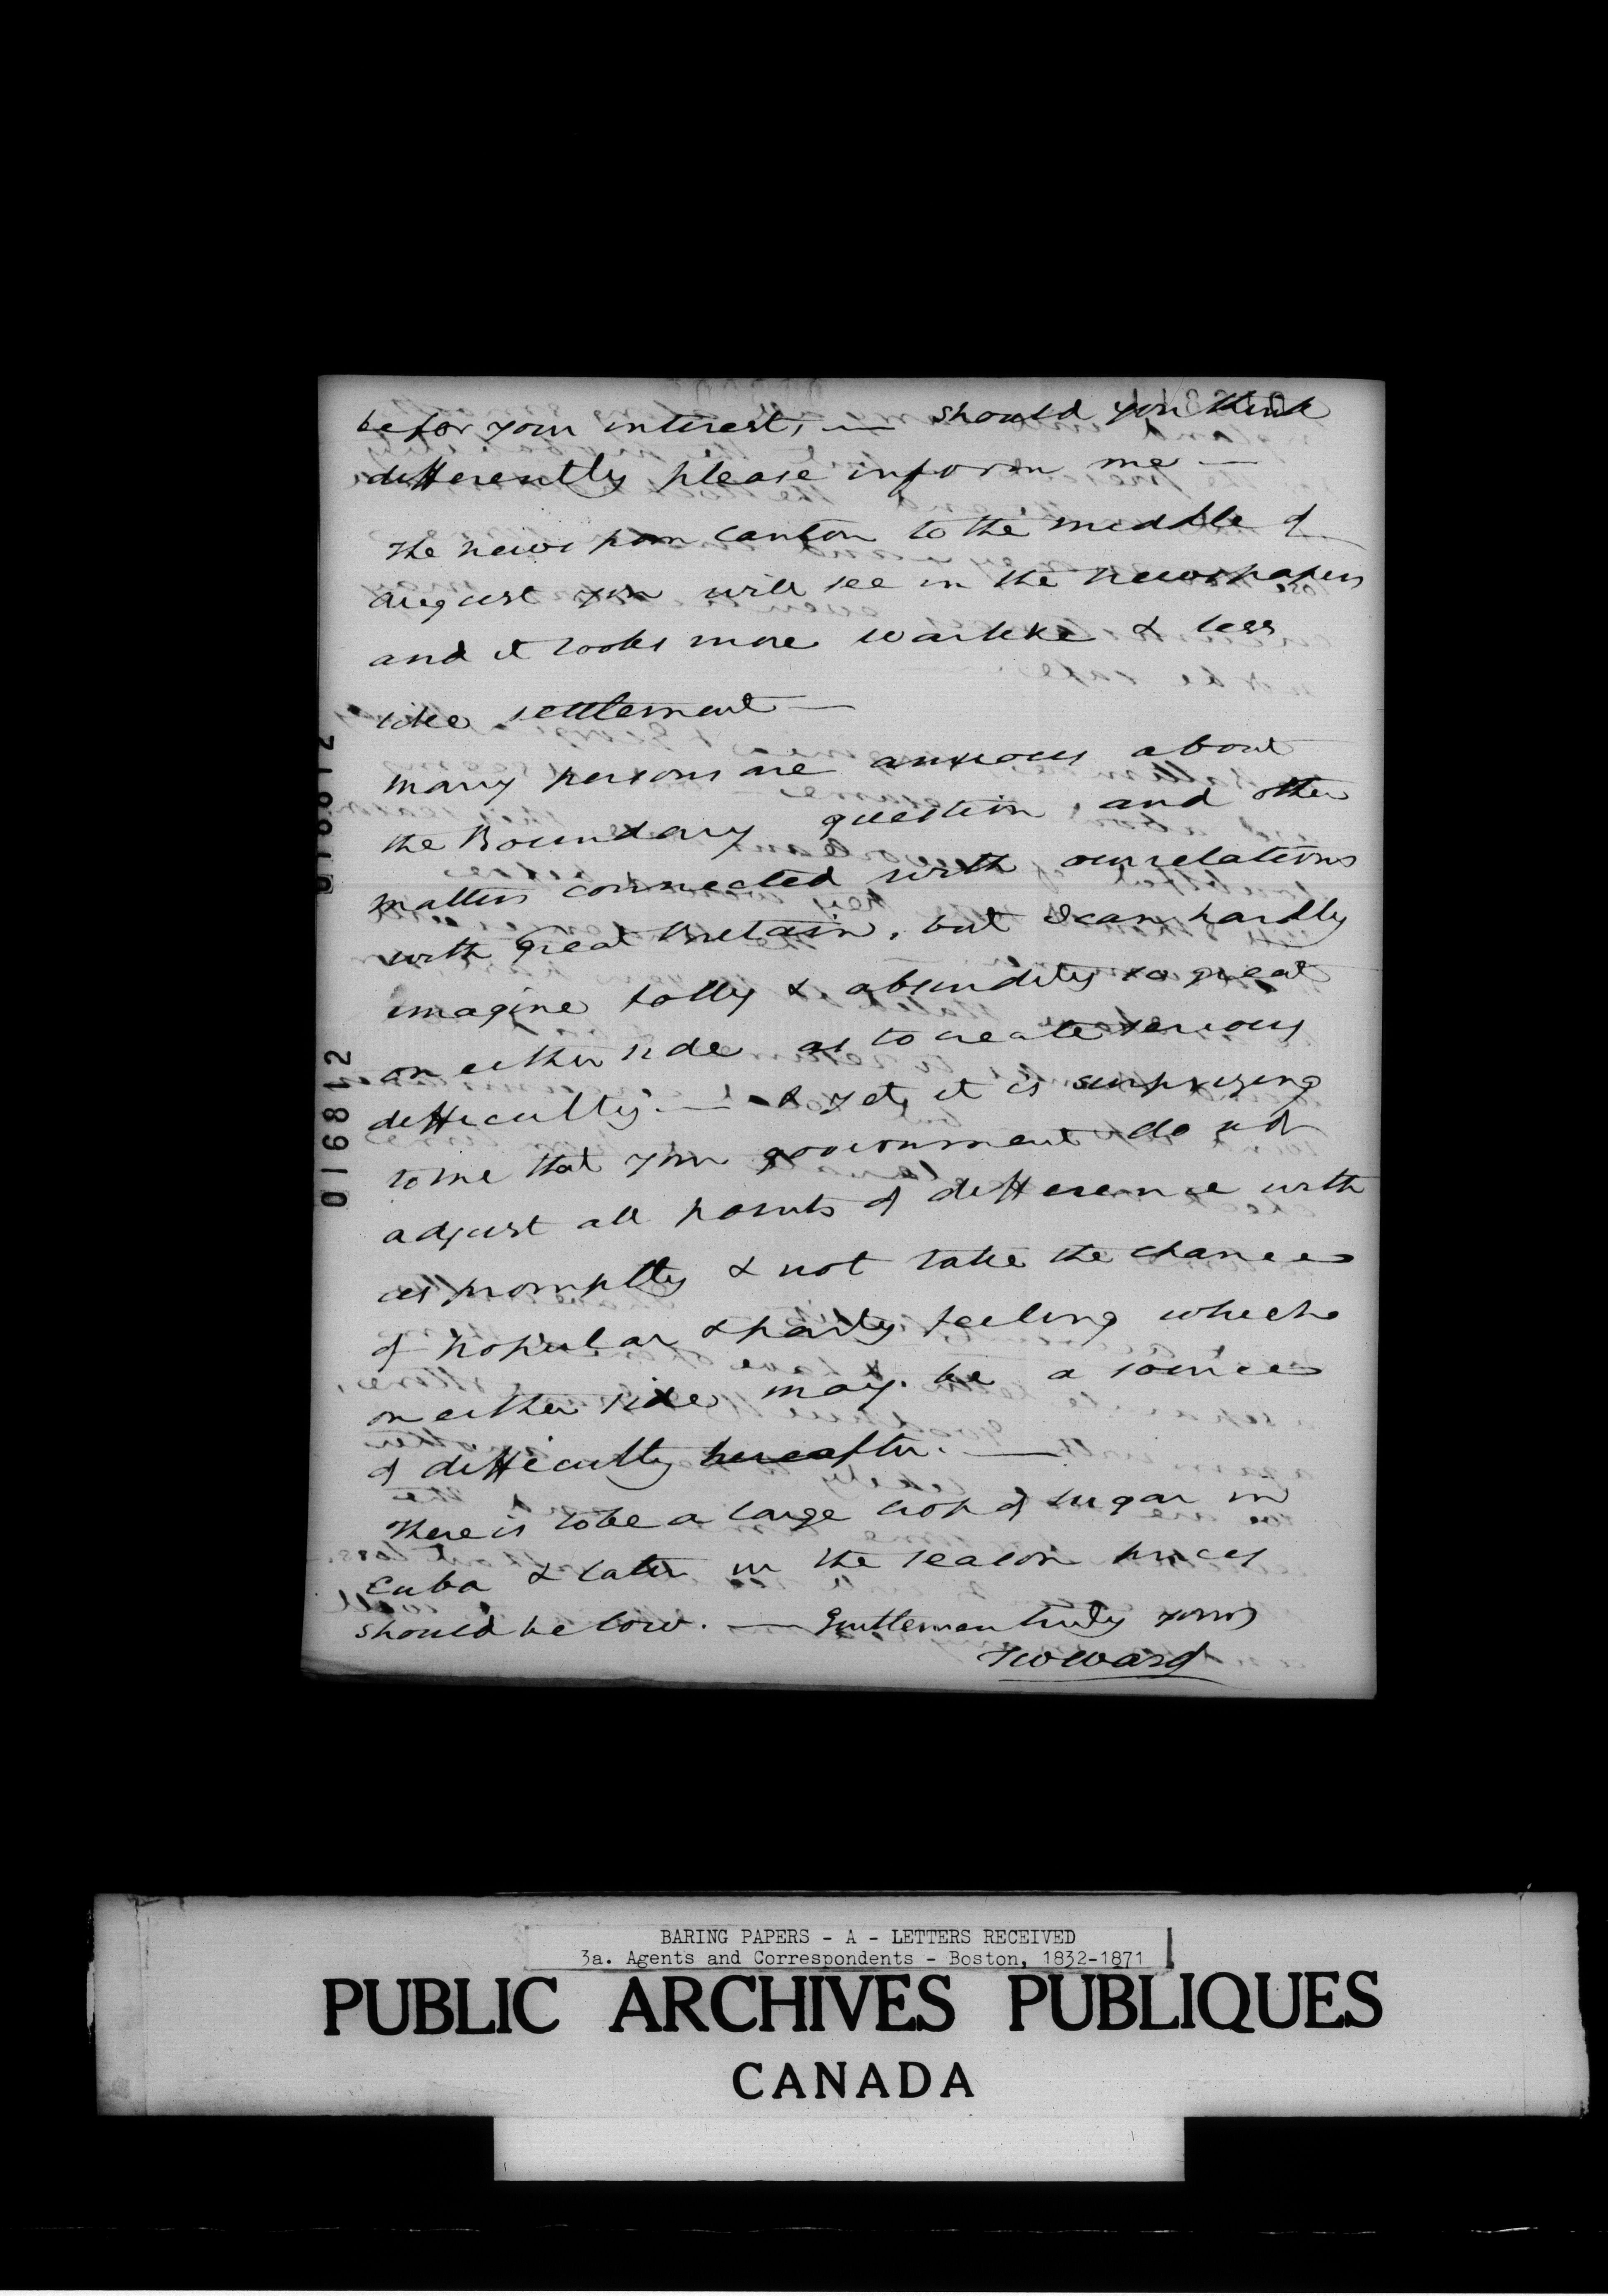 be for your interest, — should you think
differently please inform me —
The news from Canton to the middle of
august you will see in the newspapers
and it looks more warlike & less
like settlement —
many persons are anxious about
the Boundary question, and other
matters connected with our relations
with great Britain, but I can hardly
imagine folly & absurdity so great
on either side as to create serious
difficulty — & yet, it is surprizing
to me that your government do not
adjust all points of difference with
us promptly & not take the chances
of popular & party feeling which
on either side may be a source
of difficulty hereafter. —
There is to be a large crop of sugar in
Cuba & later in the season prices
should be low. — Gentlemen truly yours
TWWard
016812
BARING PAPERS - A - LETTERS RECEIVED
3a. Agents and Correspondents - Boston, 1832-1871
PUBLIC ARCHIVES PUBLIQUES
CANADA